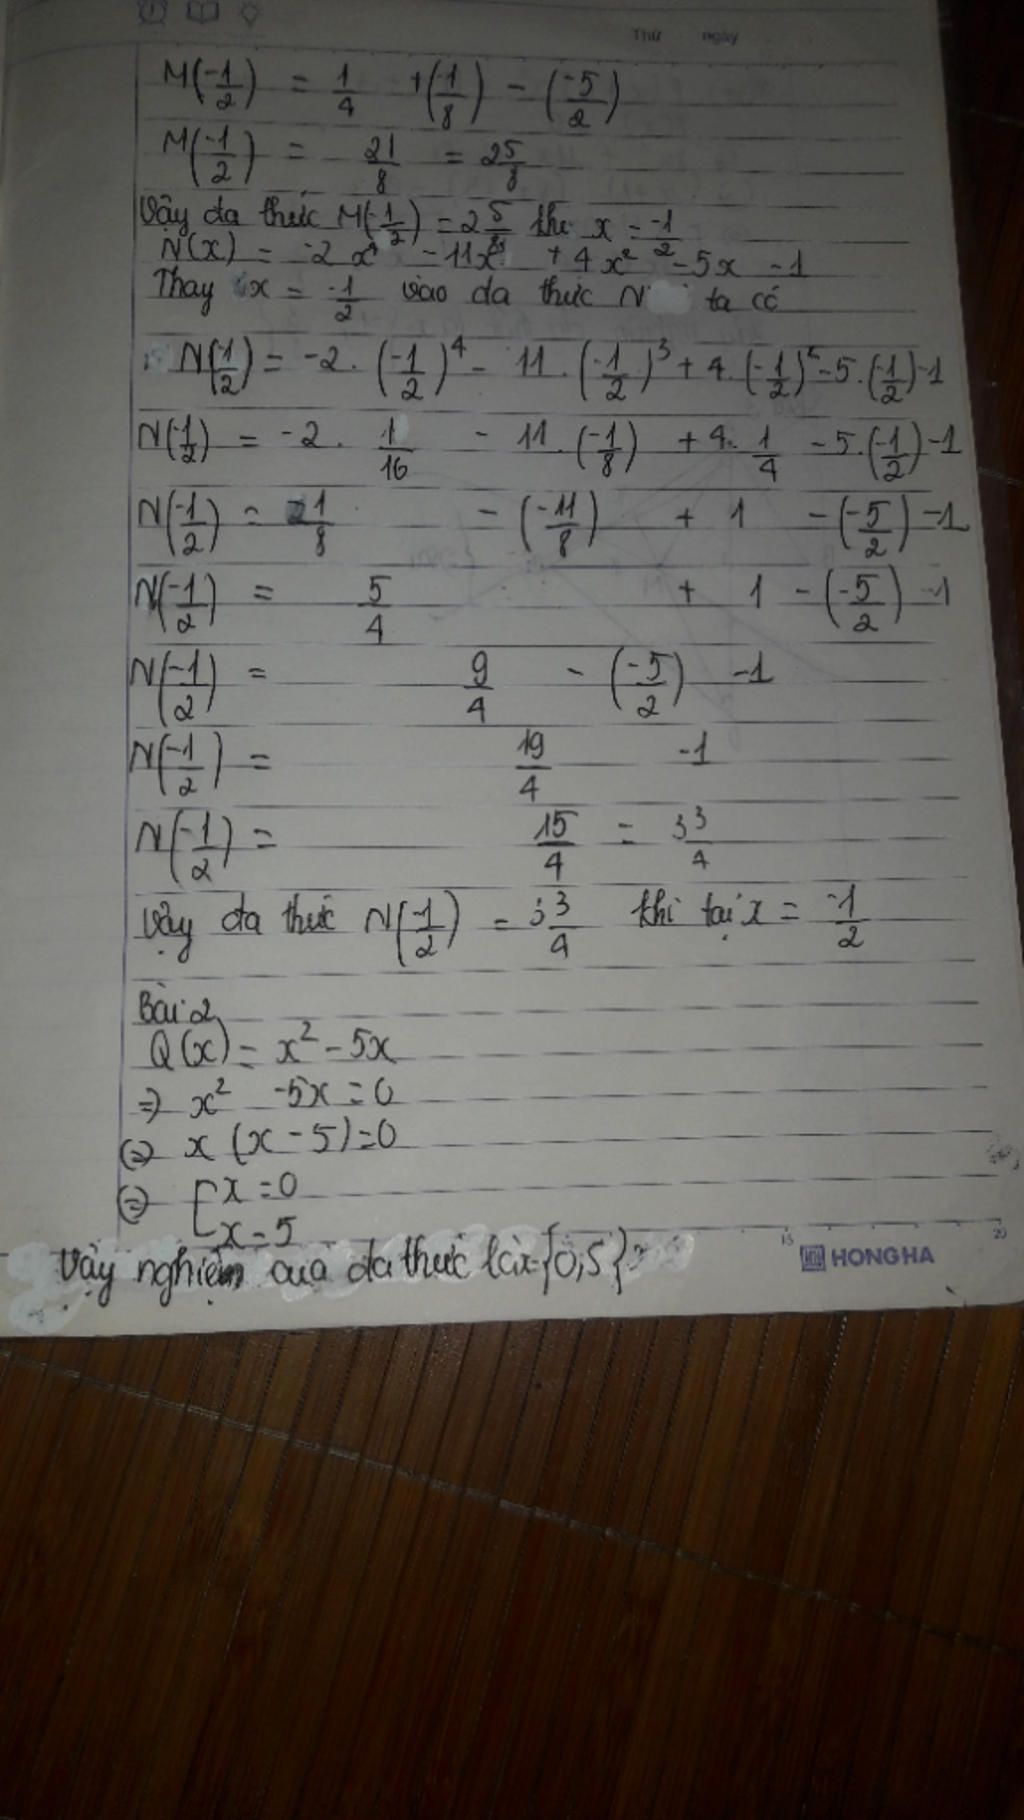 Thứ ngày
M(-1/2) = 1/4 + (-1/8) - (-5/2)
M(-1/2) = 21/8 = 2 5/8
Vậy đa thức M(-1/2) = 2 5/8 thì x = -1/2
N(x) = -2x⁴ - 11x³ + 4x² - 5x - 1
Thay x = -1/2 vào đa thức N ta có
N(1/2) = -2 . (-1/2)⁴ - 11 . (-1/2)³ + 4 . (-1/2)² - 5 . (-1/2) - 1
N(-1/2) = -2 . 1/16 - 11 . (-1/8) + 4 . 1/4 - 5 . (-1/2) - 1
N(-1/2) = -1/8 - (-11/8) + 1 - (-5/2) - 1
N(-1/2) = 5/4 + 1 - (-5/2) - 1
N(-1/2) = 9/4 - (-5/2) - 1
N(-1/2) = 19/4 - 1
N(-1/2) = 15/4 = 3 3/4
Vậy đa thức N(-1/2) = 3 3/4 khi tại x = -1/2
Bài 2
Q(x) = x² - 5x
=> x² - 5x = 0
<=> x (x - 5) = 0
<=> [x = 0
x = 5
Vậy nghiệm của đa thức là x={0,5}
15 20
HONG HA